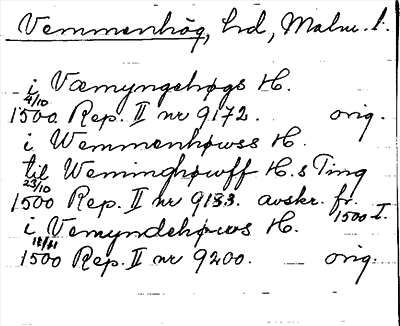 Vemmenhög, hd, Malm. l.
i Væmyngehøgs H.
4/10
1500 Rep. II nr 9172. orig.
i Wemmenhøwss H.
til Weminghøwff H.s Ting
23/10
1500 Rep. II nr 9183. avskr. fr. 1500-t.
i Vemyndehøws H.
18/11
1500 Rep. II nr 9200. orig.